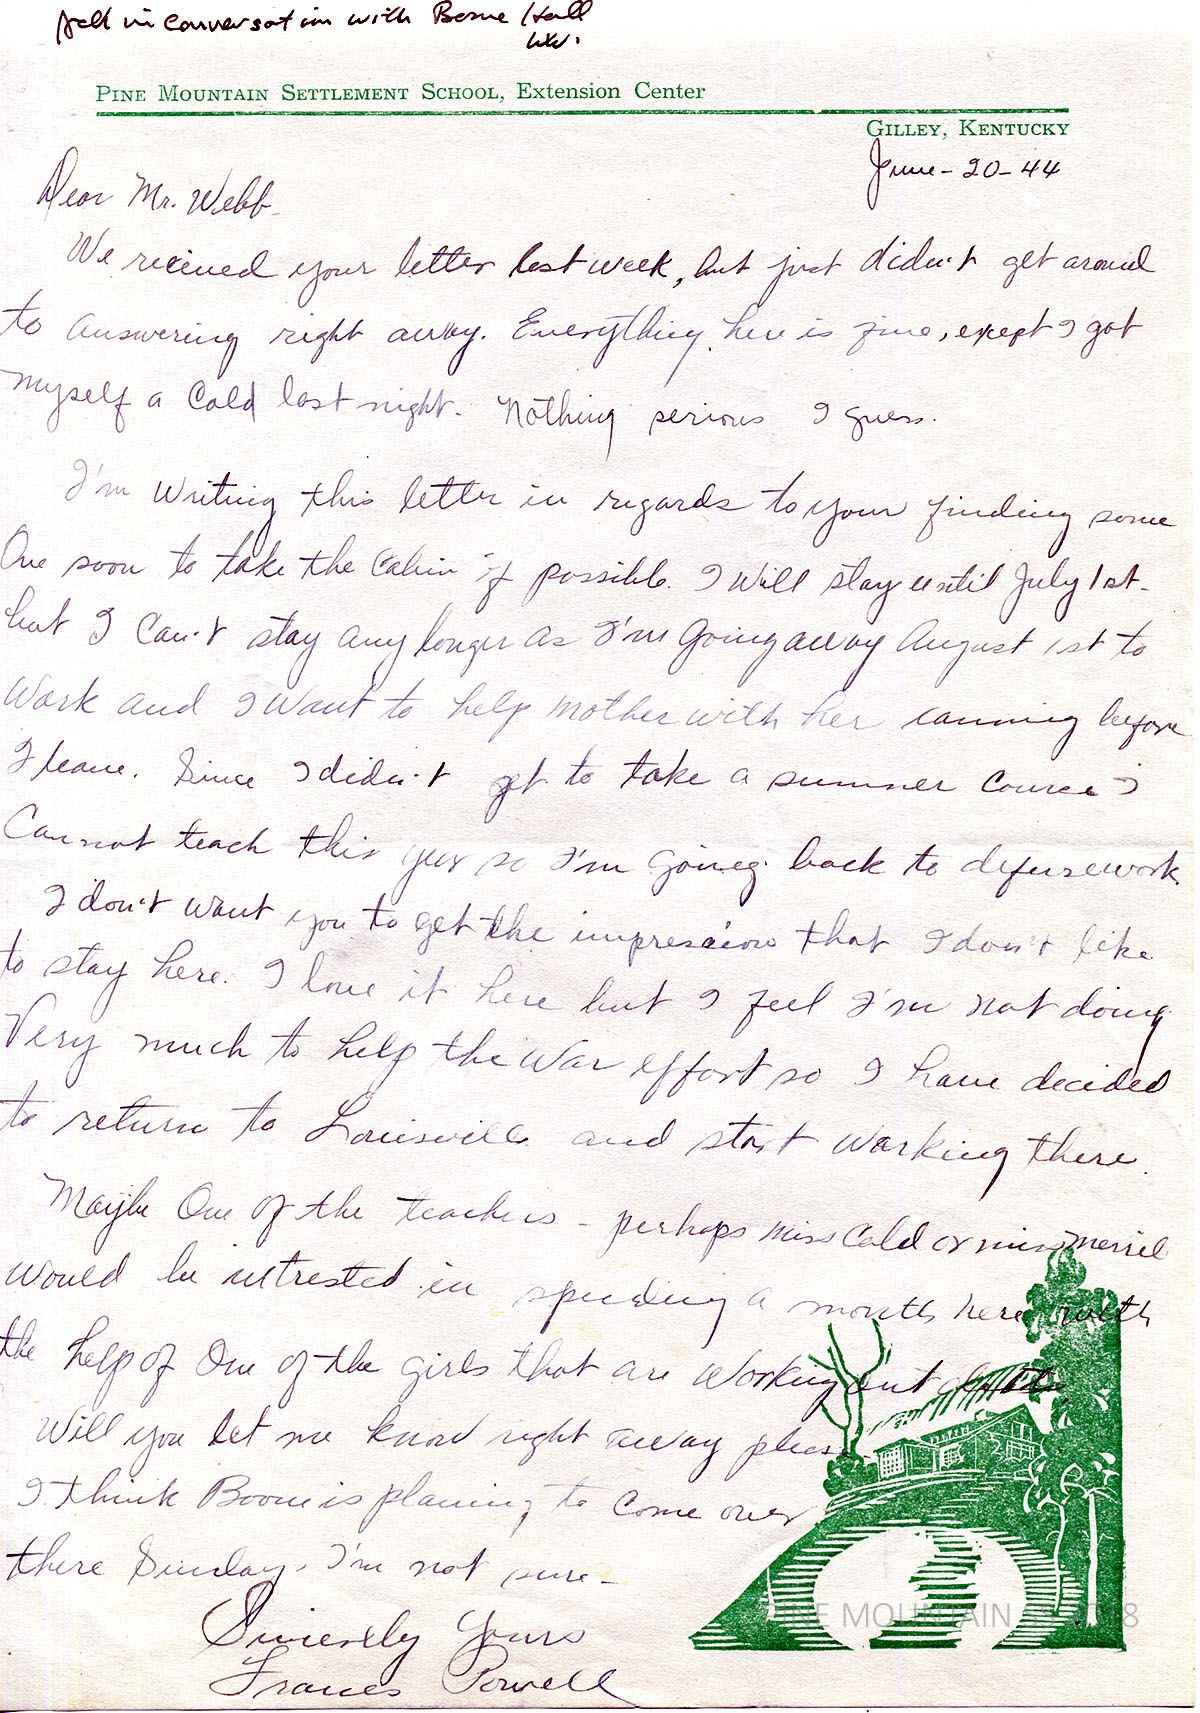 in conversation with Boone Hall
PINE MOUNTAIN SETTLEMENT SCHOOL, Extension Center
GILLEY, KENTUCKY
June-20-44
Dear Mr. Webb-
We recieved your letter last week, but just didn't get around
to answering right away. Everything here is fine, except I got
myself a Cold last night. Nothing serious I guess.
I'm writing this letter in regards to your finding some
One soon to take the Cabin if possible. I will stay until July 1st-
but I Can't stay any longer as I'm Going away August 1st to
Work and I want to help mother with her canning before
I leave. Since I didn't get to take a summer Cource I
Cannot teach this year so I'm going back to defensework.
I don't want you to get the impression that I don't like
to stay here. I love it here but I feel I'm not doing
Very much to help the War effort so I have decided
to return to Louisville and start working there.
Maybe One of the teachers - perhaps miss Cold or miss Merril
would be intrested in spending a month here with
the help of One of the girls that are working out
Will you let me know right away please.
I think Boone is planing to come over
there Sunday. I'm not sure-
Sincerely Yours
Frances Powell
PINE MOUNTAIN